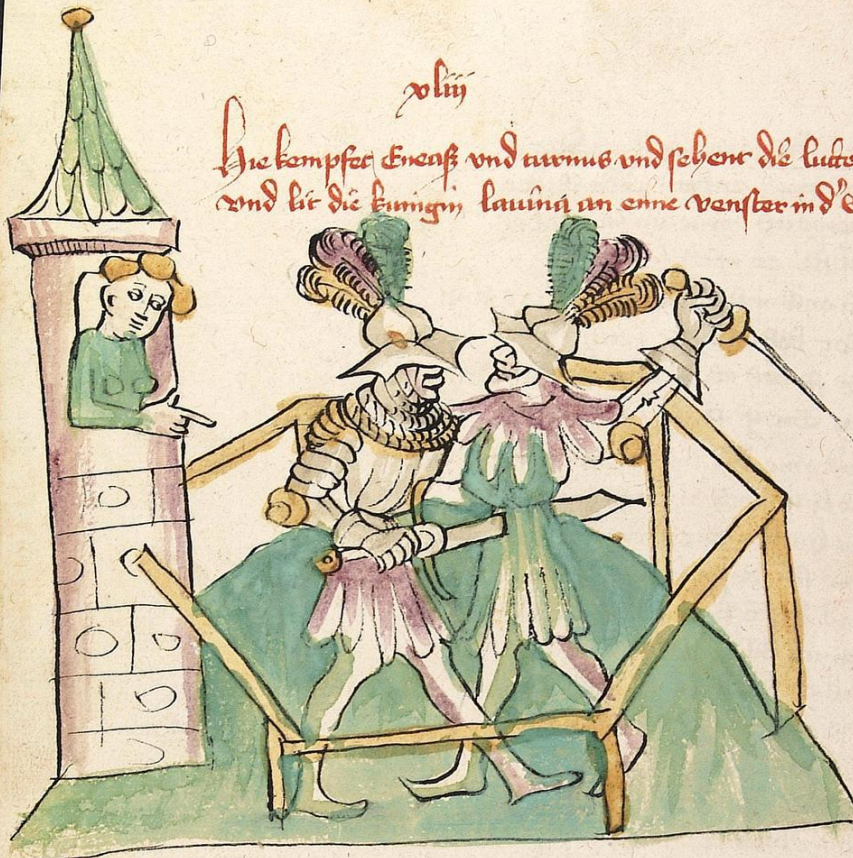 xliii
Hie kempfet Eneaß vnd turnus vnd sehent die lutte
vnd lit die kunigin lauina an eine venster in d'